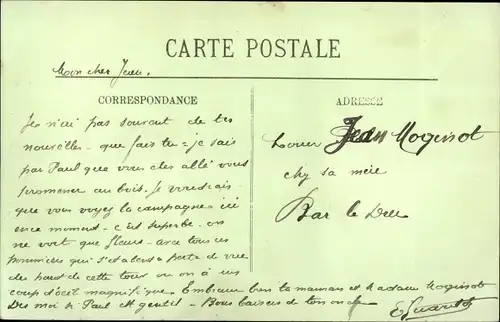 CARTE POSTALE
Mon cher Jean.
CORRESPONDANCE
Je n'ai pas souvent de tes
nouvelles - que fais tu - je sais
par Paul que vous êtes allé vous
promener au bois. Je voudrais
que vous voyez la campagne ici
en ce moment - c'est superbe - on
ne voit que fleurs - avec tous ces
pommiers qui s'étalent à perte de vue
du haut de cette tour où on a un
coup d'œil magnifique. Embrasse bien ta maman et Madame Mogissot
Dis moi si Paul est gentil - Bons baisers de ton oncle
ADRESSE
Jean Mogissot
chez sa mère
Bar le Duc